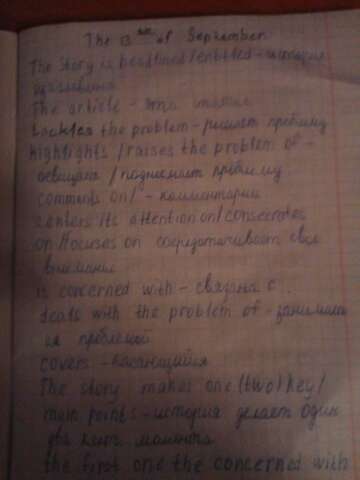 The 13th of September.
The story is headlined/entitled - история
озаглавлена
The article - эта статья
tackles the problem - решает проблему
highlights/raises the problem of -
освещала/поднимает проблему
comments on/ - комментарии
centers its attention on/consecrates
on/focuses on сосредотачивает свое
внимание
is concerned with - связана с..
deals with the problem of - занимает
ся проблемой
covers - касающийся
The story makes one (two) key/
main points - история делает один
два ключ. момента
the first one the concerned with